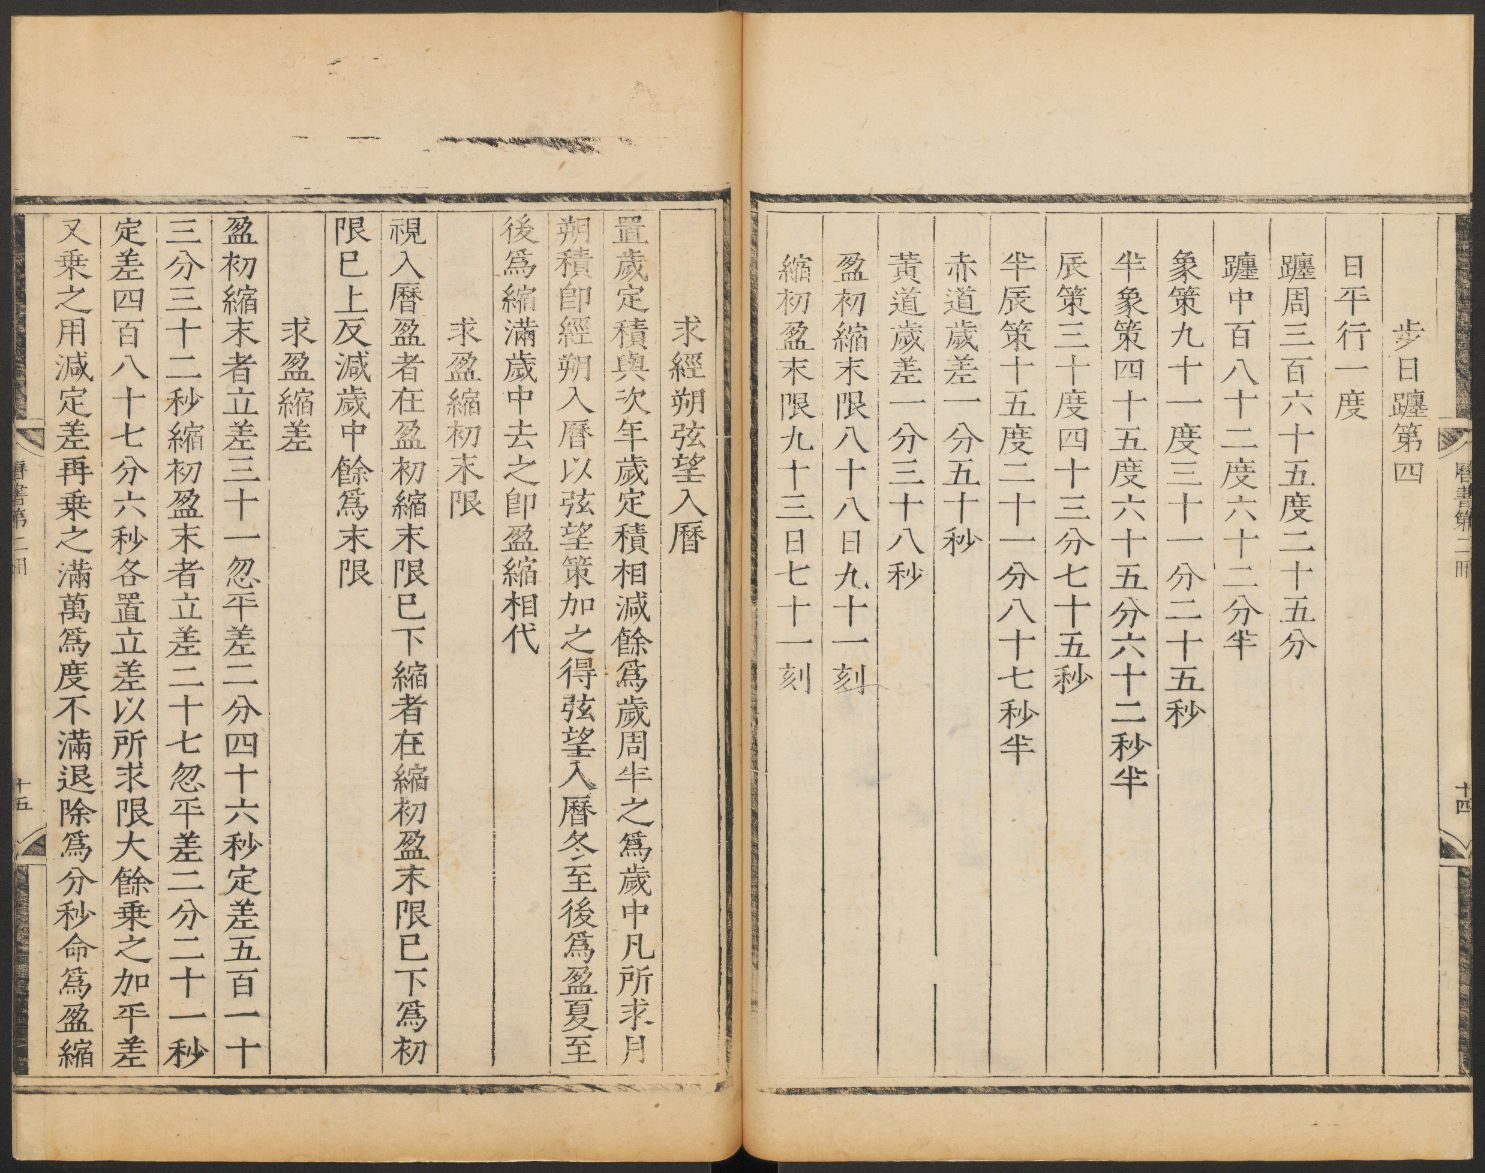 曆書第二冊
十四
步日躔第四
日平行一度
躔周三百六十五度二十五分
躔中百八十二度六十二分半
象策九十一度三十一分二十五秒
半象策四十五度六十五分六十二秒半
辰策三十度四十三分七十五秒
半辰策十五度二十一分八十七秒半
赤道歲差一分五十秒
黃道歲差一分三十八秒
盈初縮末限八十八日九十一刻
縮初盈末限九十三日七十一刻
求經朔弦望入曆
置歲定積與次年歲定積相減餘爲歲周半之爲歲中凡所求月
朔積卽經朔入曆以弦望策加之得弦望入曆冬至後爲盈夏至
後爲縮滿歲中去之卽盈縮相代
求盈縮初末限
視入曆盈者在盈初縮末限已下縮者在縮初盈末限已下爲初
限已上反減歲中餘爲末限
求盈縮差
盈初縮末者立差三十一忽平差二分四十六秒定差五百一十
三分三十二秒縮初盈末者立差二十七忽平差二分二十一秒
定差四百八十七分六秒各置立差以所求限大餘乘之加平差
又乘之用減定差再乘之滿萬爲度不滿退除爲分秒命爲盈縮
曆書第二冊
十五